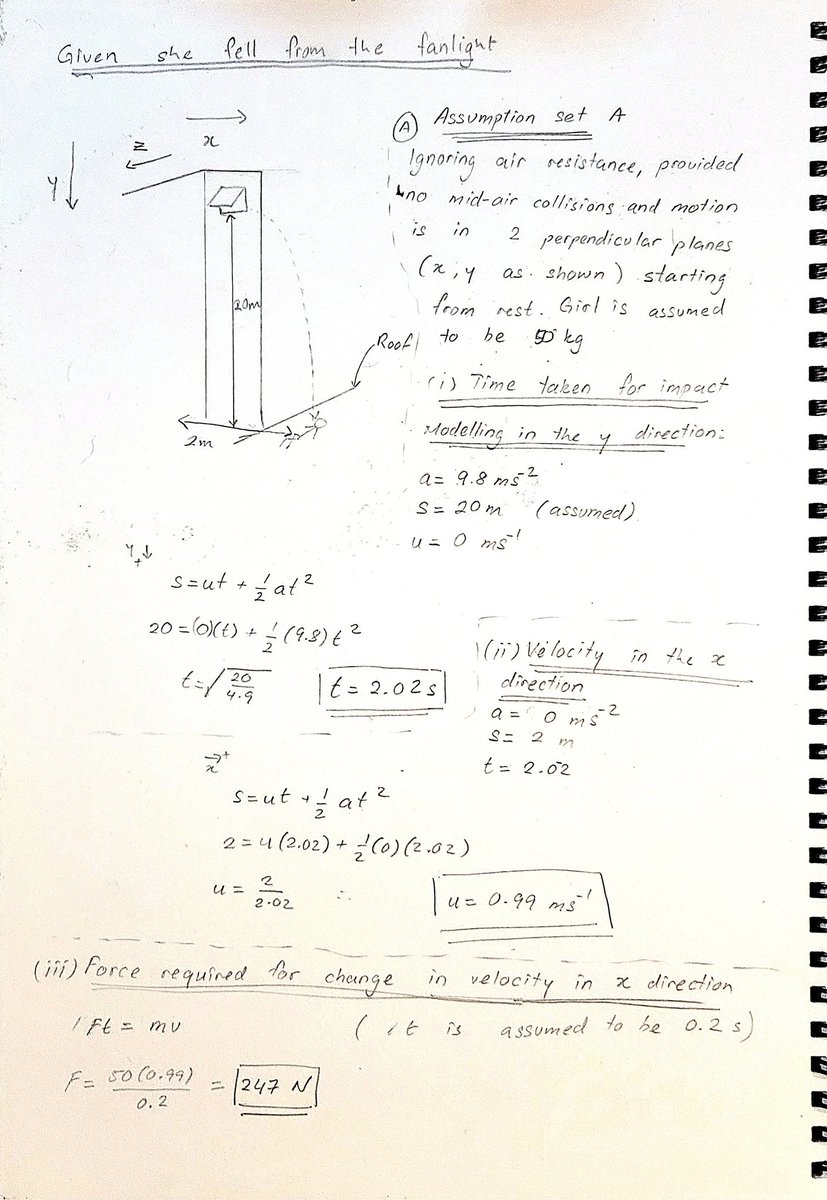 Given she fell from the fanlight
x
z
y
20m
Roof
2m
A Assumption set A
Ignoring air resistance, provided
no mid-air collisions and motion
is in 2 perpendicular planes
(x, y as shown) starting
from rest. Girl is assumed
to be 50 kg
(i) Time taken for impact
Modelling in the y direction:
a = 9.8 ms⁻²
s = 20m (assumed)
u = 0 ms⁻¹
Y+↓
s = ut + 1/2 at²
20 = (0)(t) + 1/2 (9.8) t²
t = √20/4.9
t = 2.02 s
(ii) Velocity in the x
direction
a = 0 ms⁻²
s = 2 m
t = 2.02
→+
x
s = ut + 1/2 at²
2 = u(2.02) + 1/2 (0)(2.02)
u = 2/2.02 ∴
u = 0.99 ms⁻¹
(iii) Force required for change in velocity in x direction
Ft = mv (t is assumed to be 0.2 s)
F = 50(0.99)/0.2 = 247 N